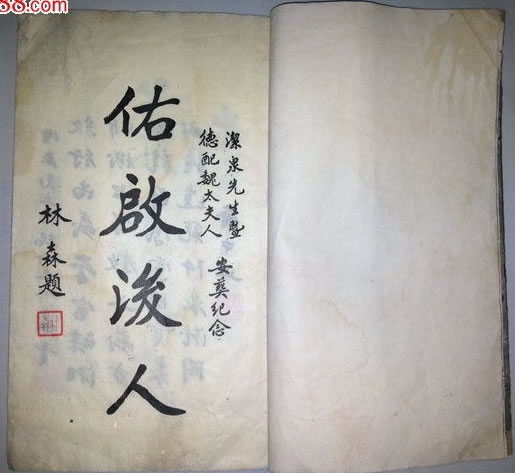 潔泉先生暨
德配魏太夫人
安葬纪念
佑啟浚人
林森題
88.com